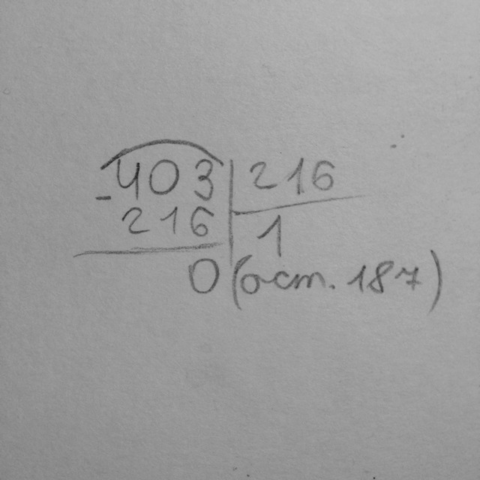 -403 216
216 1
0 (ост. 187)